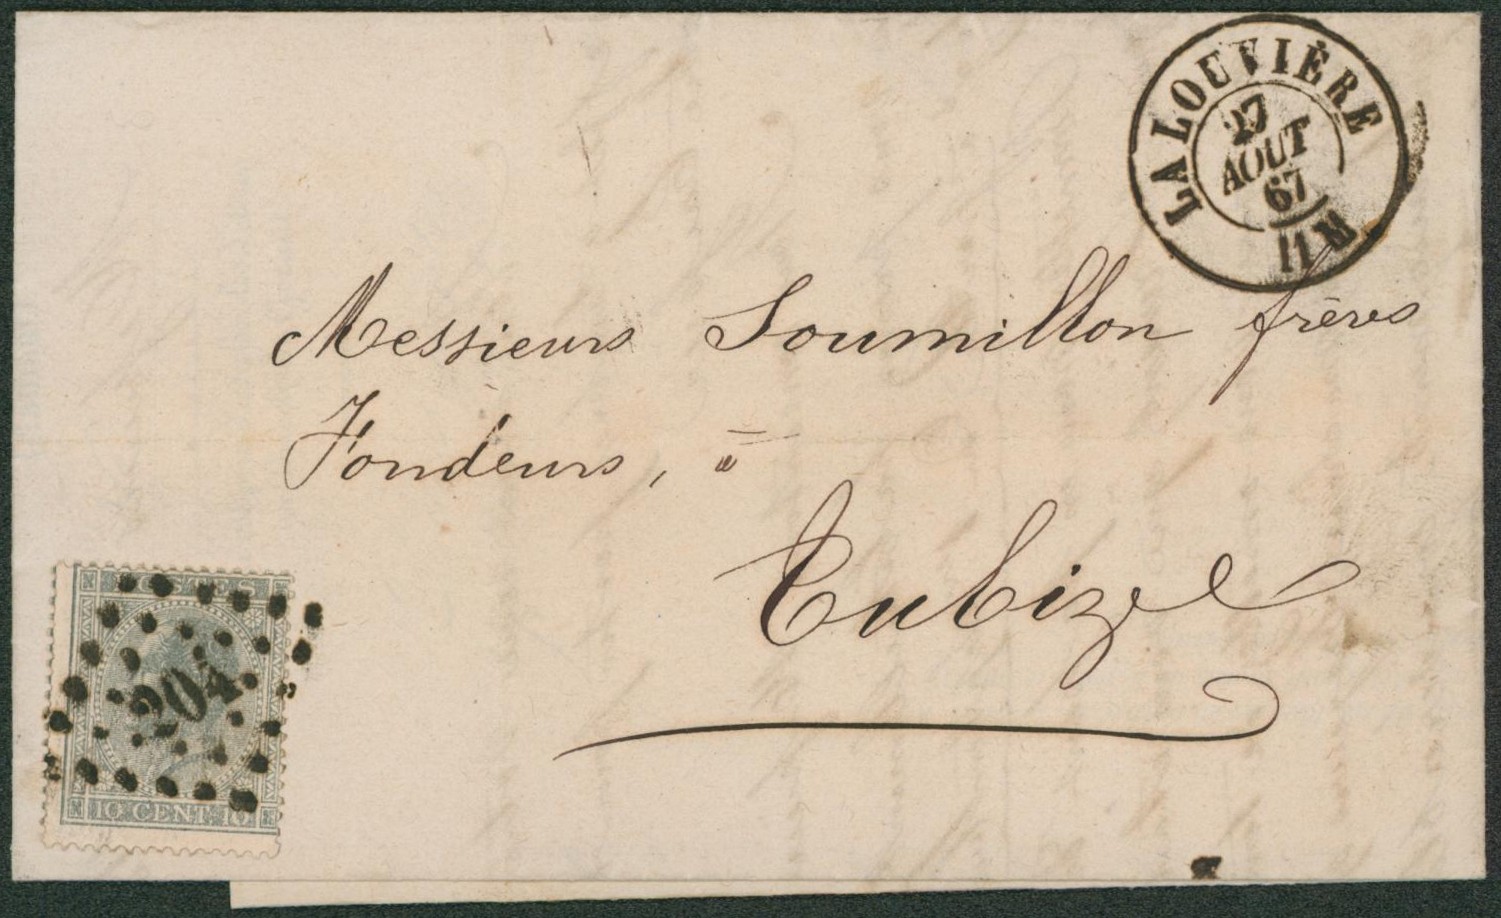 LA LOUVIÈRE
27
AOUT
67
11 R
Messieurs Soumillon frères
Fondeurs, à
Tubize
POSTES
204
10 CENT. 10